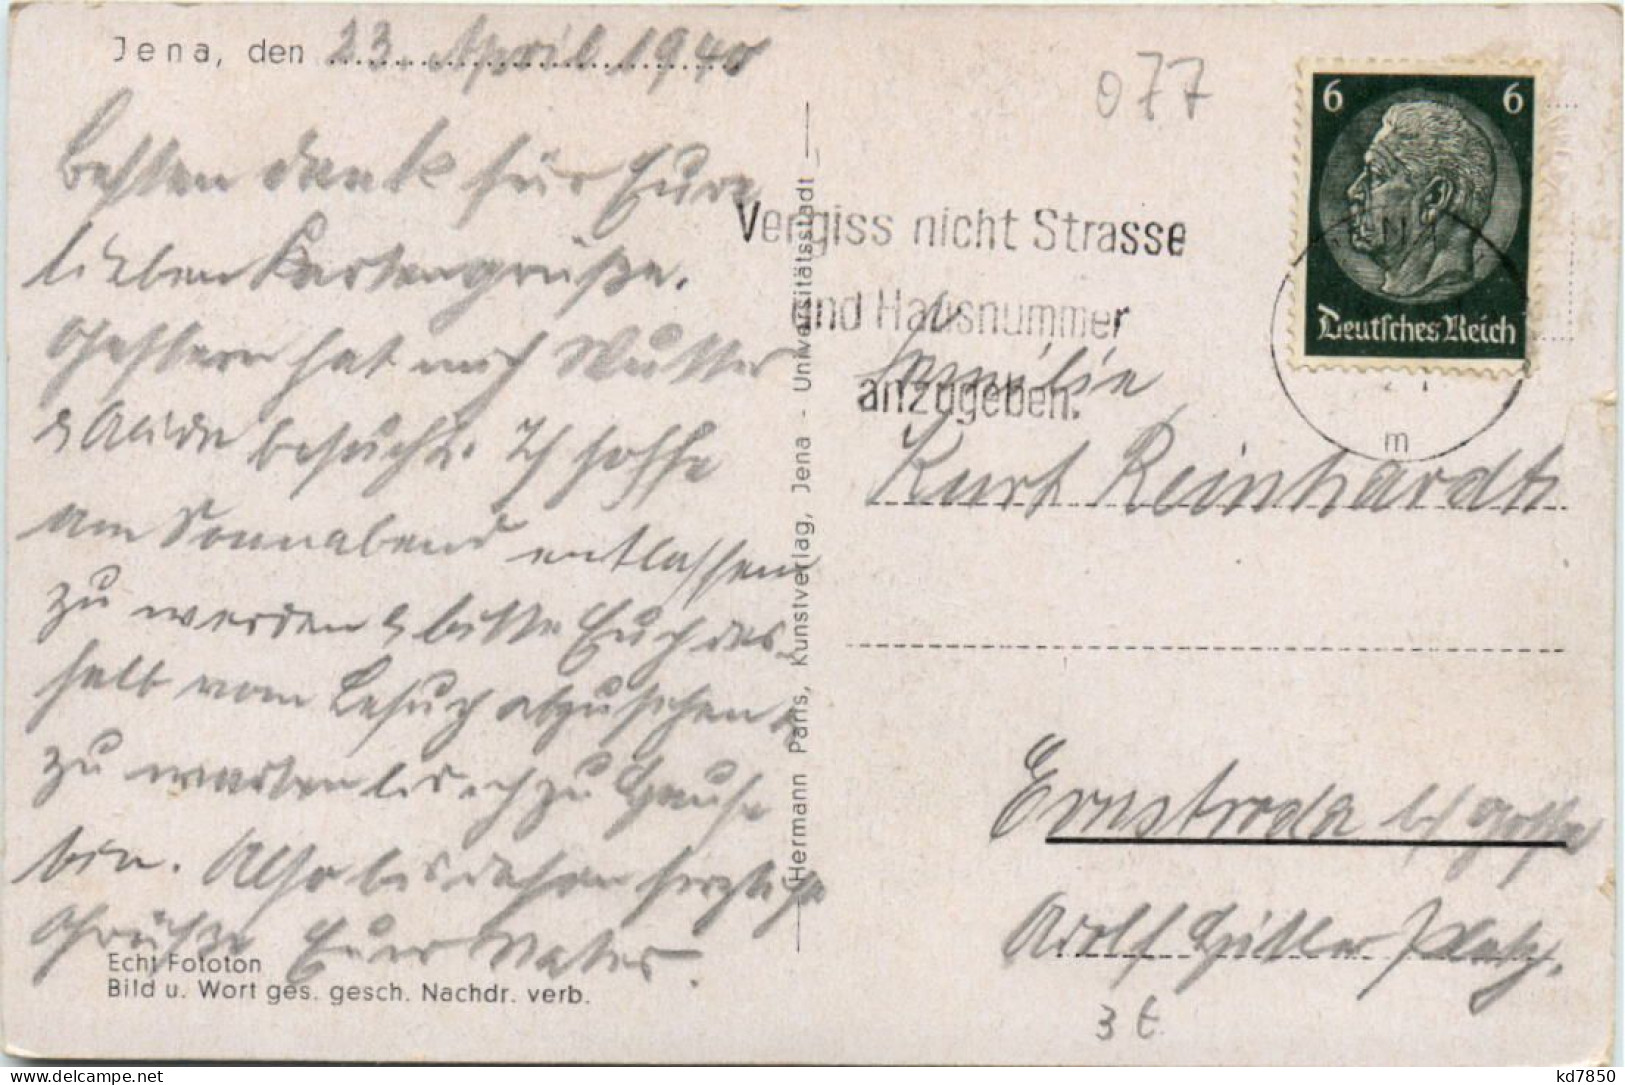 Jena, den 23. April 1940
077
6 6
Deutsches Reich
Besten Dank für Eure
lieben Kartengrüße.
Gestern hat mich Mutter
& besucht. Ich hoffe
am Sonnabend entlassen
zu werden & bitte Euch des-
halb vom Besuch abzusehen &
zu warten bis ich zu Hause
bin. Also bis dahin herzliche
Grüße Euer Vater.
Echt Fototon
Bild u. Wort ges. gesch. Nachdr. verb.
Hermann Paris, Kunstverlag, Jena - Universitätsstadt
Vergiss nicht Strasse
und Hausnummer
anzugeben.
m
Familie
Kurt Reinhardt
Ernstroda b/ Gotha
Adolf Hitler Platz.
3 t
kd7850